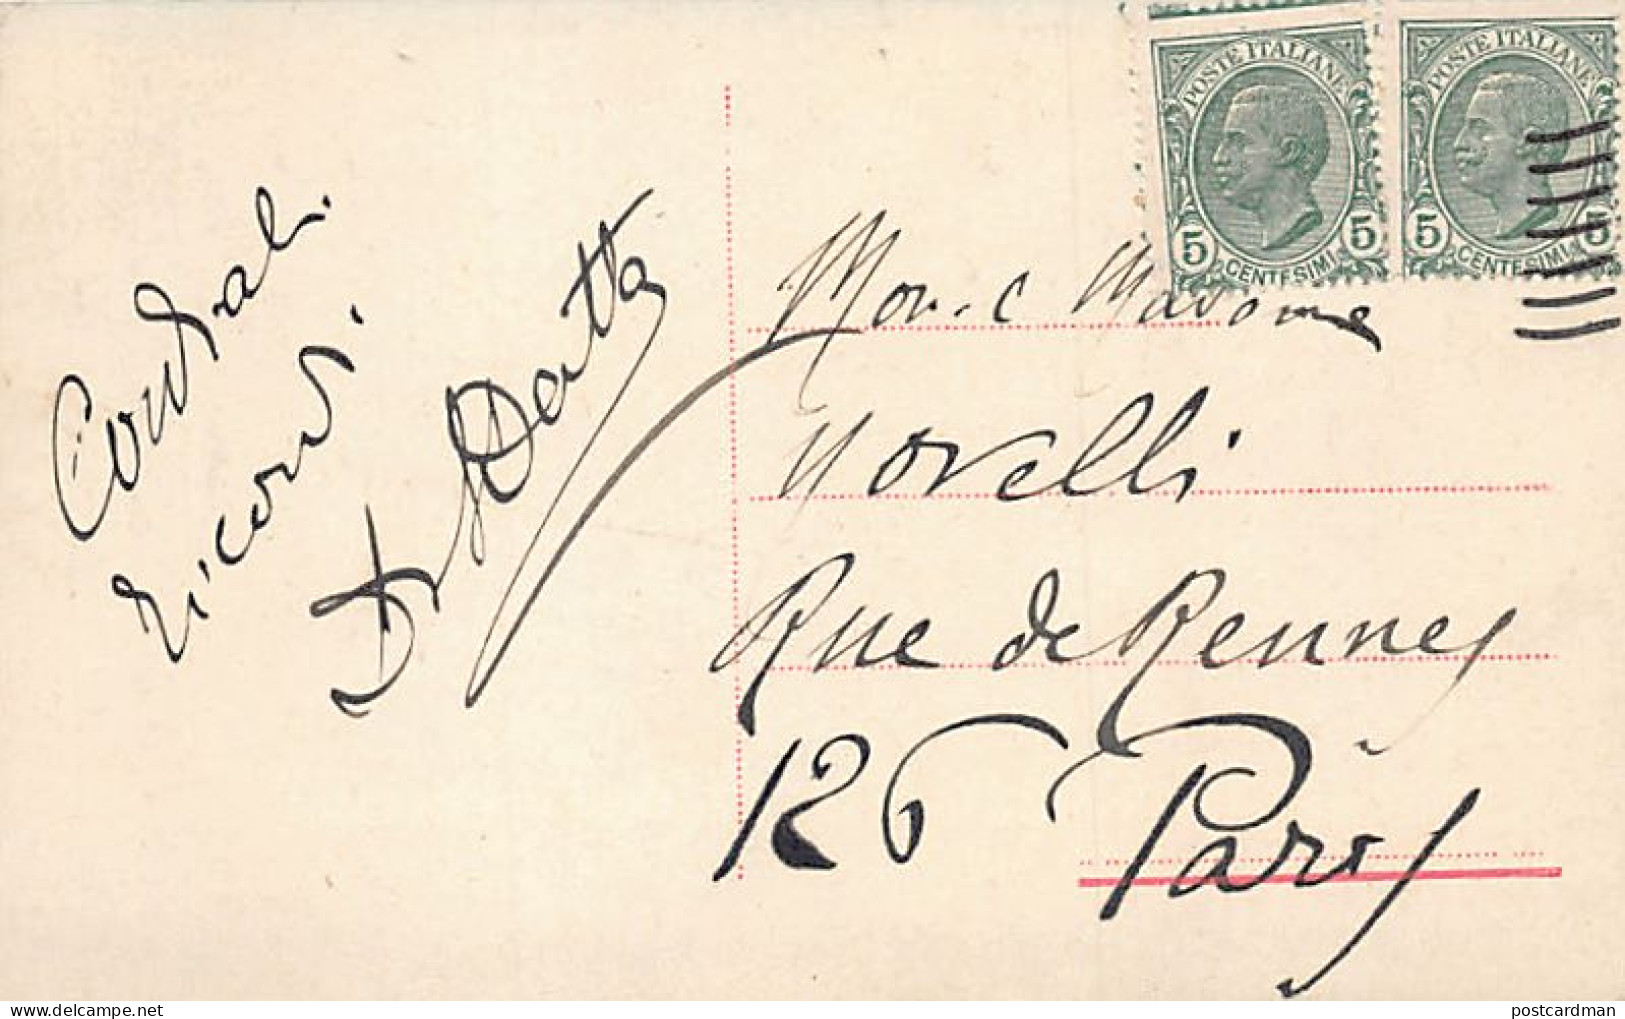 Cordiali
ricordi.
Dr Datta
POSTE ITALIANE
5 CENTESIMI 5
POSTE ITALIANE
5 CENTESIMI 5
Madame
Novelli
Rue de Rennes
126 Paris
postcardman